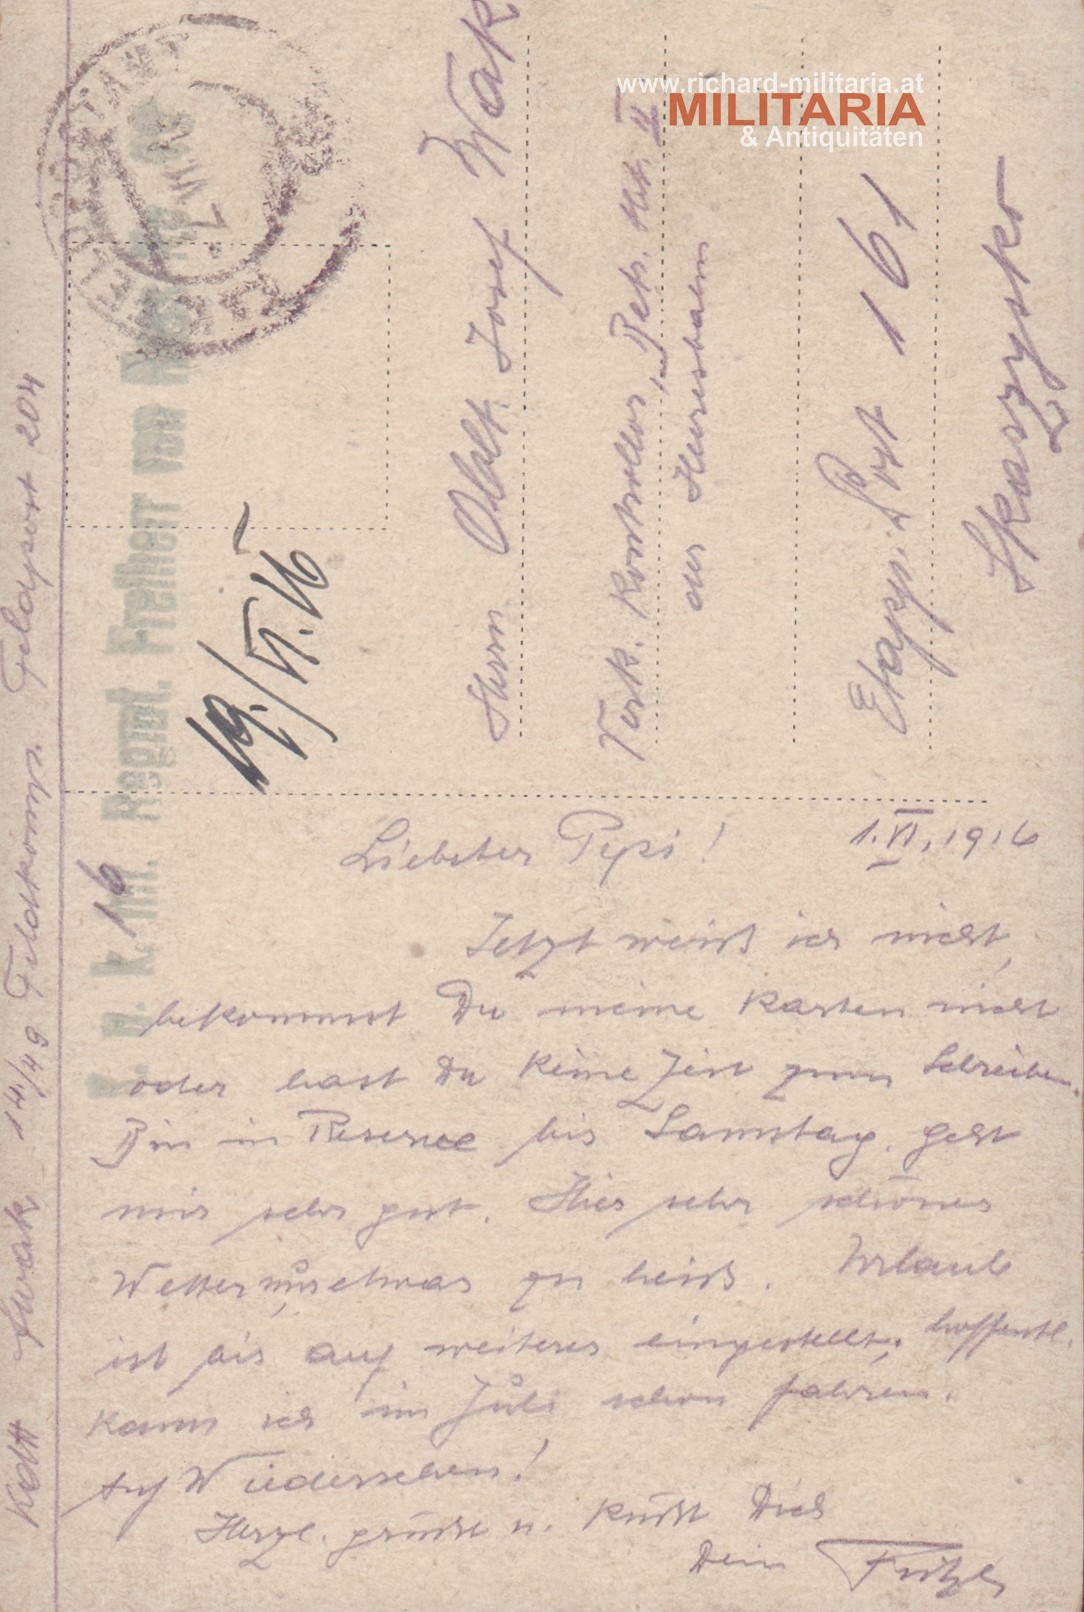 www.richard-militaria.at
MILITARIA
& Antiquitäten
Herrn Oblt. Josef Wak
Verk. Kontrollor, Betr. Abt. II
der Heeresbahn
Etapp. Post 161
Skarzysko
19./VI. 16
K. u. k. Inf. Regmt. Freiherr von
16
14./49 Feldkomp. Feldpost 204
Liebster Pepi! 1.VI.1916
Jetzt weiß ich nicht,
bekommst Du meine Karten nicht
oder hast Du keine Zeit zum Schreiben.
Bin in Reserve bis Samstag, geht
mir sehr gut. Hier sehr schönes
Wetter nur etwas zu heiß. Urlaub
ist bis auf weiteres eingestellt, hoffentl.
kann ich im Juli schon fahren.
Auf Wiedersehen!
Herzl. grüßt u. küßt Dich
Dein Fritzl